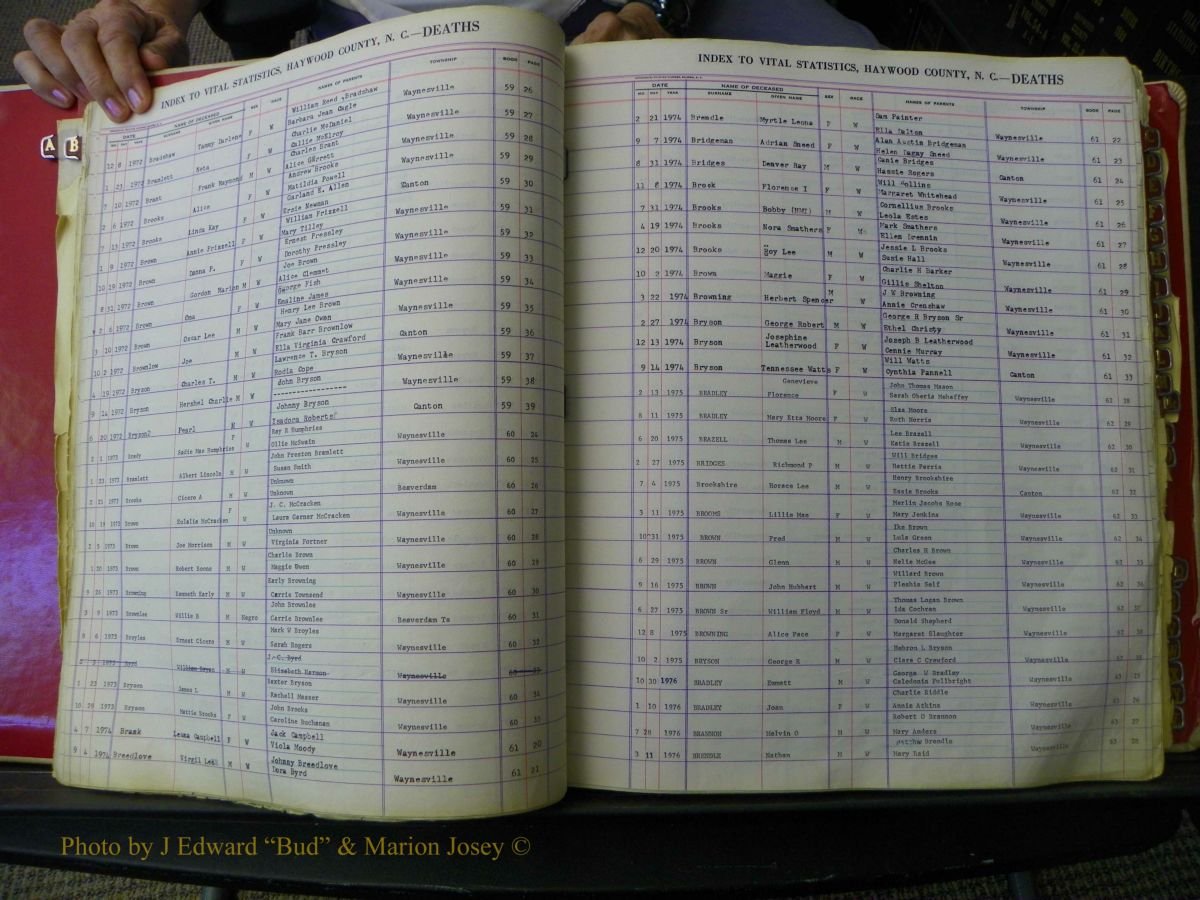 A B
INDEX TO VITAL STATISTICS, HAYWOOD COUNTY, N. C.—DEATHS
DATE NAME OF DECEASED SEX RACE NAMES OF PARENTS TOWNSHIP BOOK PAGE
William Reed Bradshaw
12 8 1972 Bradshaw Tammy Darlene F W Barbara Jean Cagle Waynesville 59 26
Charlie McDaniel
1 23 1972 Bramlett Neta F W Callie McElroy Waynesville 59 27
Charles Brant
7 10 1972 Brant Frank Raymond M W Alice Garrett Waynesville 59 28
Andrew Brooks
2 6 1972 Brooks Alice F W Matilda Powell Waynesville 59 29
Garland E. Allen
7 13 1972 Brooks Linda Kay F W Essie Newman Canton 59 30
William Frizzell
1 9 1972 Brown Annie Frizzell F W Mary Tilley Waynesville 59 31
Ernest Pressley
10 19 1972 Brown Donna F. F W Dorothy Pressley Waynesville 59 32
Joe Brown
8 31 1972 Brown Gordon Marion M W Alice Clement Waynesville 59 33
George Fish
6 1972 Brown Oma F W Emaline James Waynesville 59 34
Henry Lee Brown
3 10 1972 Brown Oscar Lee M W Mary Jane Owen Waynesville 59 35
Frank Barr Brownlow
10 2 1972 Brownlow Joe M W Ella Virginia Crawford Canton 59 36
Lawrence T. Bryson
4 19 1972 Bryson Charles T. M W Rodia Cope Waynesville 59 37
John Bryson
9 14 1972 Bryson Hershel Charlie M W ------------------ Waynesville 59 38
Johnny Bryson
6 20 1972 Bryson Pearl M W Isadora Roberts Canton 59 39
Ray R Humphries
2 1 1973 Brady Sadie Mae Humphries F Ollie McSwain Waynesville 60 24
John Preston Bramlett
1 23 1973 Bramlett Albert Lincoln M W Susan Smith Waynesville 60 25
Unknown
2 25 1973 Brooks Cicero A M W Unknown Beaverdam 60 26
J. C. McCracken
10 19 1973 Brown Eulalia McCracken F W Laura Garner McCracken Waynesville 60 27
Unknown
2 5 1973 Brown Joe Morrison M W Virginia Fortner Waynesville 60 28
Charlie Brown
1 20 1973 Brown Robert Boone M W Maggie Owen Waynesville 60 29
Early Browning
9 26 1973 Browning Kenneth Early M W Carrie Townsend Waynesville 60 30
John Brownlee
3 9 1973 Brownlee Willie B M Negro Carrie Brownlee Beaverdam Ts 60 31
Mark W Broyles
8 6 1973 Broyles Ernest Cicero M W Sarah Rogers Waynesville 60 32
J. C. Byrd
2 3 1973 Byrd William Bryan M W Elizabeth Harmon Waynesville 60 33
Baxter Bryson
1 23 1973 Bryson James L M W Rachell Messer Waynesville 60 34
John Brooks
10 29 1973 Bryson Mattie Brooks F W Caroline Buchanan Waynesville 60 35
Jack Campbell
4 7 1974 Brank Leuna Campbell F W Viola Moody Waynesville 61 20
Johnny Breedlove
9 4 1974 Breedlove Virgil Lee M W Iora Byrd Waynesville 61 21
INDEX TO VITAL STATISTICS, HAYWOOD COUNTY, N. C.—DEATHS
DATE NAME OF DECEASED
MO. DAY YEAR SURNAME GIVEN NAME SEX RACE NAMES OF PARENTS TOWNSHIP BOOK PAGE
Sam Painter
2 21 1974 Brendle Myrtle Leona F W Ella Dalton Waynesville 61 22
Alan Austin Bridgeman
9 7 1974 Bridgeman Adrian Sneed F W Helen Dagay Sneed Waynesville 61 23
Canie Bridges
8 31 1974 Bridges Denver Ray M W Hassie Rogers Canton 61 24
Will Collins
11 8 1974 Brook Florence I F W Margaret Whitehead Waynesville 61 25
Cornellius Brooks
7 31 1974 Brooks Bobby (NMI) M W Leola Estes Waynesville 61 26
Mark Smathers
4 19 1974 Brooks Nora Smathers F Ellen Drennin Waynesville 61 27
Jessie L Brooks
12 20 1974 Brooks Roy Lee M W Susie Hall Waynesville 61 28
Charlie H Barker
10 2 1974 Brown Maggie F W Gillie Shelton Waynesville 61 29
J W Browning
3 22 1974 Browning Herbert Spencer M W Annie Crenshaw Waynesville 61 30
George R Bryson Sr
2 27 1974 Bryson George Robert M W Ethel Christy Waynesville 61 31
Josephine Joseph B Leatherwood
12 13 1974 Bryson Leatherwood F W Gennie Murray Waynesville 61 32
Will Watts
9 14 1974 Bryson Tennessee Watts F W Cynthia Pannell Canton 61 33
Genevieve John Thomas Mason
2 13 1975 BRADLEY Florence F W Sarah Oberia Mehaffey Waynesville 62 28
Elza Moore
8 11 1975 BRADLEY Mary Etta Moore F W Ruth Norris Waynesville 62 29
Lee Brazell
6 20 1975 BRAZELL Thomas Lee M W Katie Brazell Waynesville 62 30
Will Bridges
2 27 1975 BRIDGES Richmond P M W Hettie Parris Waynesville 62 31
Henry Brookshire
7 4 1975 Brookshire Horace Lee M W Essie Brooks Canton 62 32
Merlin Jacobs Rose
3 11 1975 BROOMS Lillie Mae F W Mary Jenkins Waynesville 62 33
Ike Brown
10 31 1975 BROWN Fred M W Lula Green Waynesville 62 34
Charles H Brown
6 29 1975 BROWN Glenn M W Nelie McGee Waynesville 62 35
Willard Brown
9 16 1975 BROWN John Hubbert M W Pleshia Self Waynesville 62 36
Thomas Logan Brown
6 27 1975 BROWN Sr William Floyd M W Ida Cochran Waynesville 62 37
Donald Shepherd
12 8 1975 BROWNING Alice Pace F W Margaret Slaughter Waynesville 62 38
Hebron L Bryson
10 2 1975 BRYSON George E M W Clara C Crawford Waynesville 62
George W Bradley
10 30 1976 BRADLEY Emmett M W Caledonia Fullbright Waynesville 63 25
Charlie Riddle
1 10 1976 BRADLEY Joan F W Annie Atkins Waynesville 63 26
Robert O Brannon
7 28 1976 BRANNON Melvin O M W Mary Anders Waynesville 63 27
Brendle
3 11 1976 BRENDLE Nathan M W Mary Reid Waynesville 63 28
Photo by J Edward “Bud” & Marion Josey ©